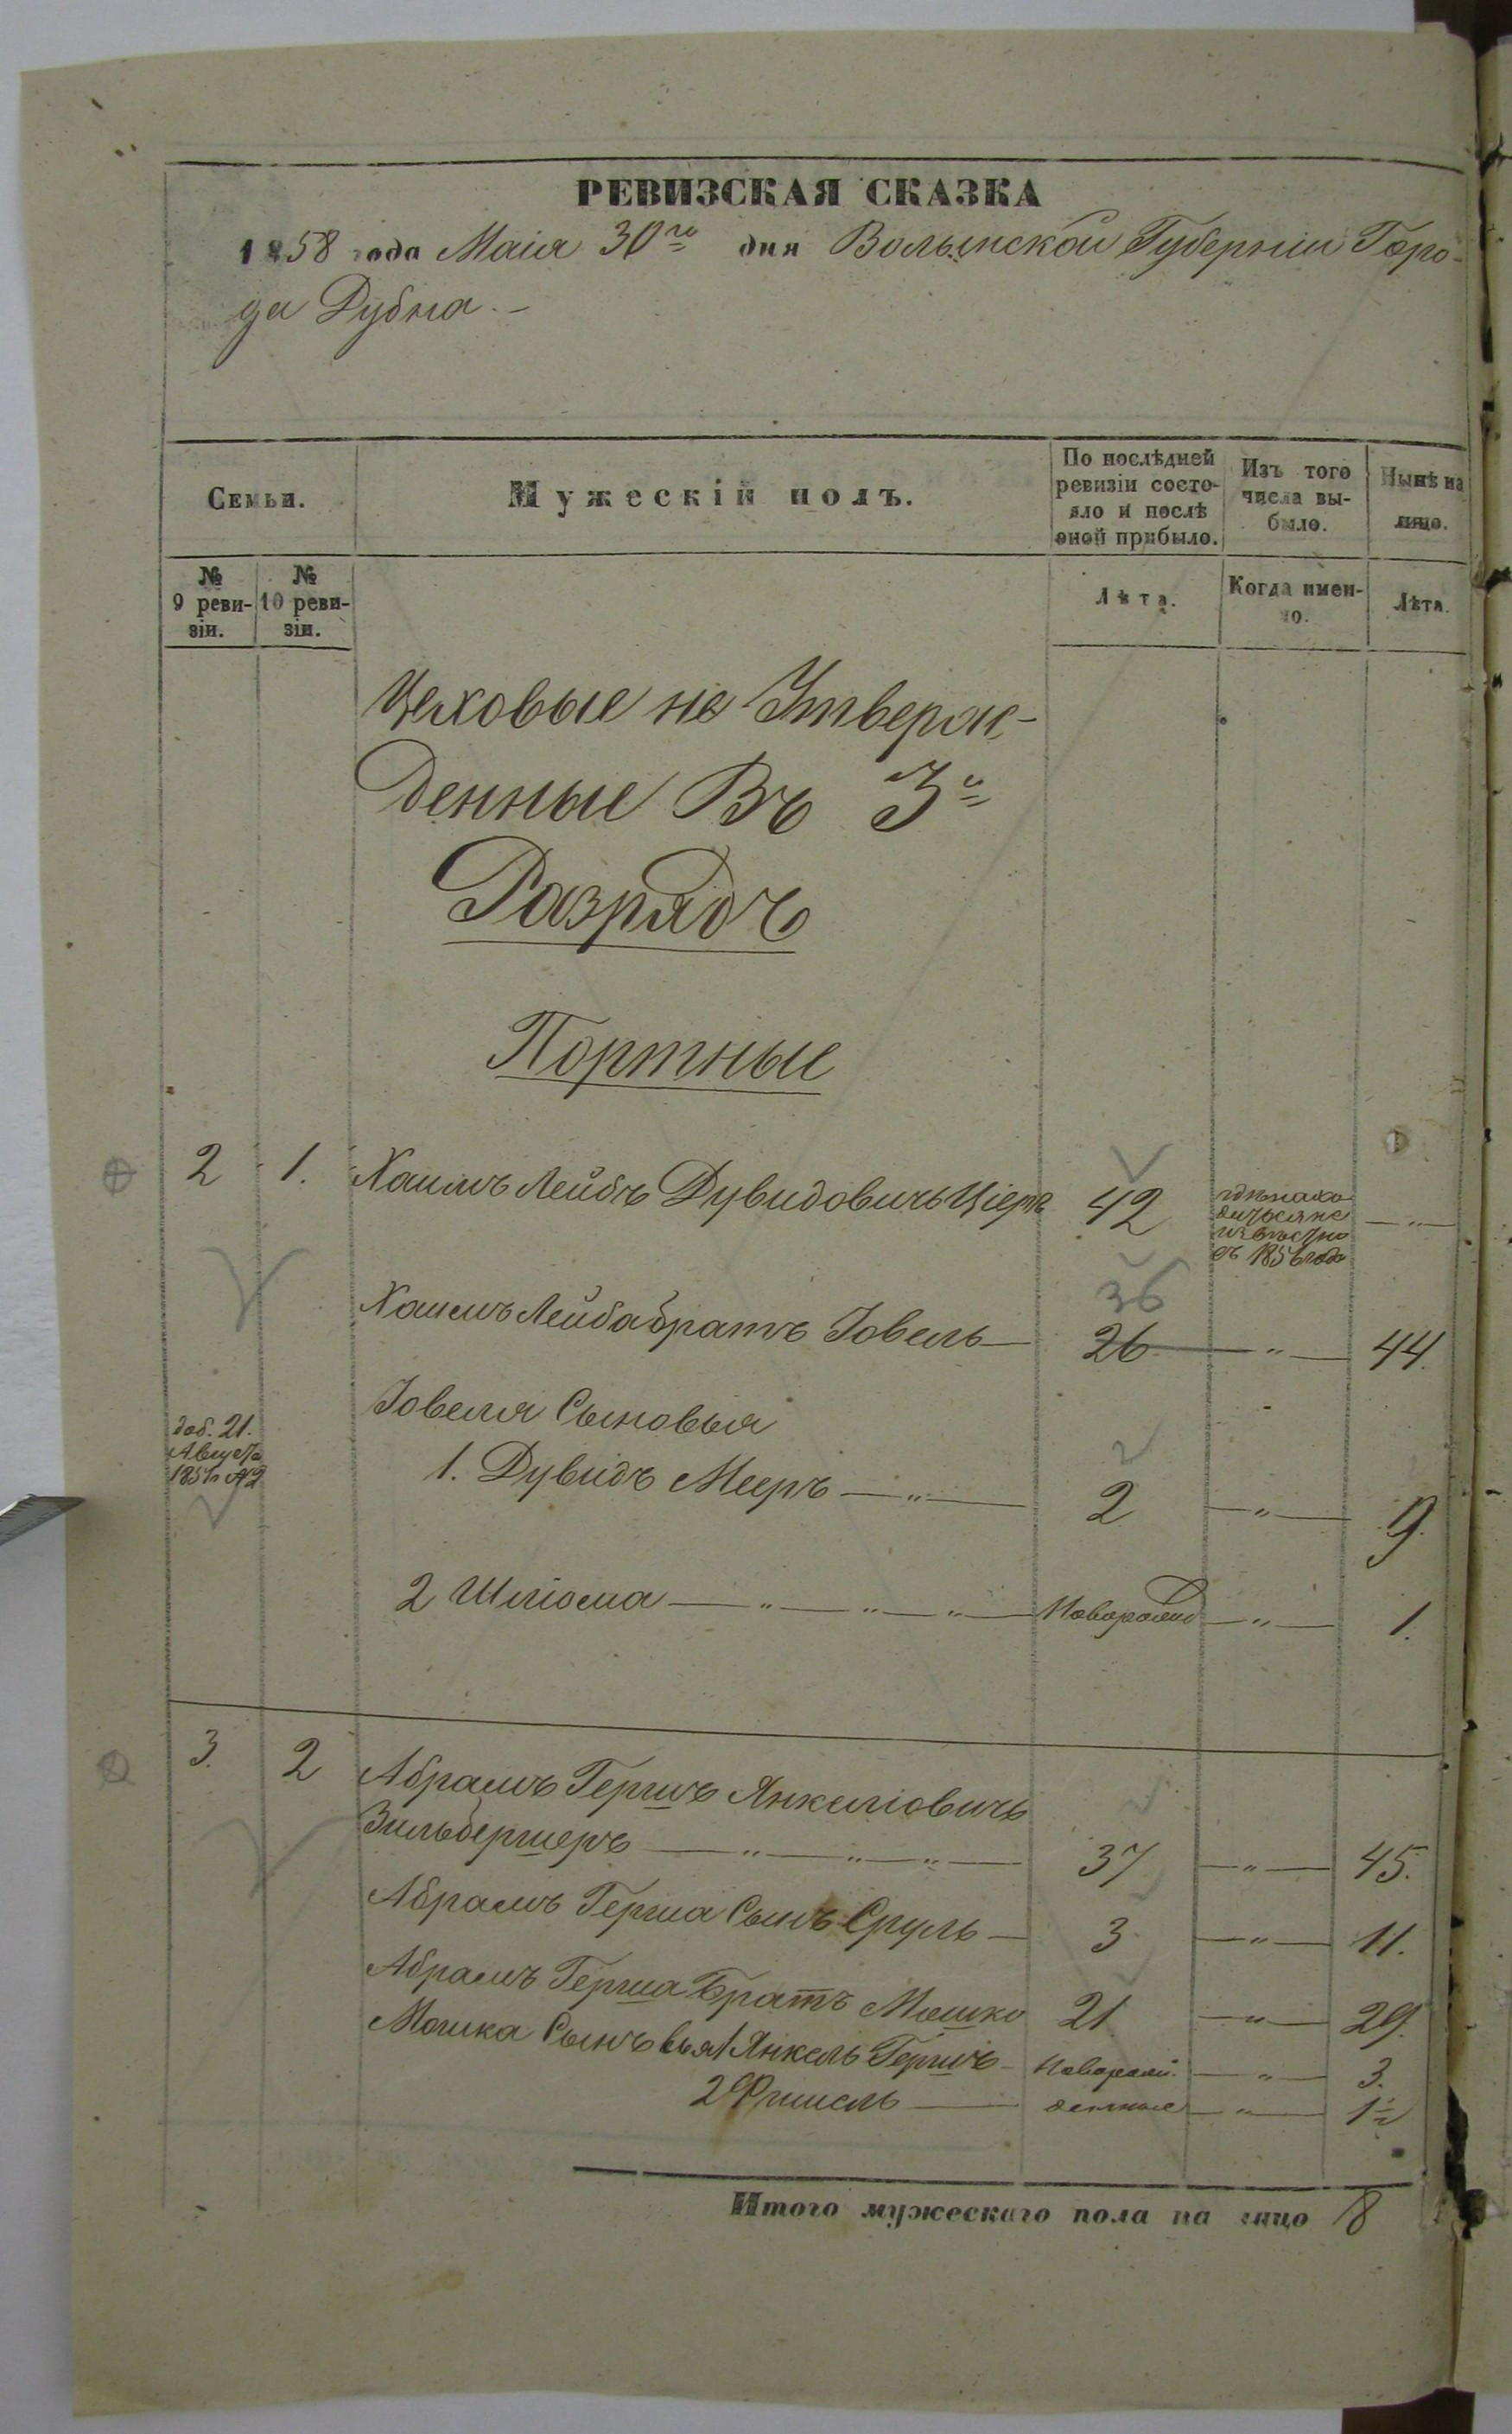 РЕВИЗСКАЯ СКАЗКА
1858 года Маія 30го дня Волынской Губерніи Горо-
да Дубна.-
Семьи.
Мужескій полъ.
По послѣдней ревизіи состо-
яло и послѣ
оной прибыло.
Изъ того
числа вы-
было.
Нынѣ на
лицо.
№
9 реви-
зіи.
№
10 реви-
зіи.
Лѣта.
Когда имен-
но.
Лѣта.
Цеховые не Утверж-
денные Въ 3й
Разрядъ
Портные
2 1. Хаимъ Лейбъ Дувидовичъ Ціеръ 42 гдѣ нахо
дится не
извѣстно
съ 1856 года — " —
36
Хаимъ Лейба братъ Іовель — 26 — " — 44.
Іовеля Сыновья
доб. 21.
Августа
185 №2
1. Дувидъ Мееръ — " — 2 — " — 9.
2 Шліома — " — " — " — Новорожд — " — 1.
3. 2 Абрамъ Гершъ Янкеліовичъ
Зильбершеръ — " — " — " — 37 — " — 45.
Абрамъ Герша Сынъ Сруль — 3 — " — 11.
Абрамъ Герша Братъ Мошко 21 — " — 29.
Мошка Сыновья 1 Янкель Гершъ — Новорож. — " — 3.
2 Фишель — денные — " — 1½
Итого мужескаго пола на лицо 8